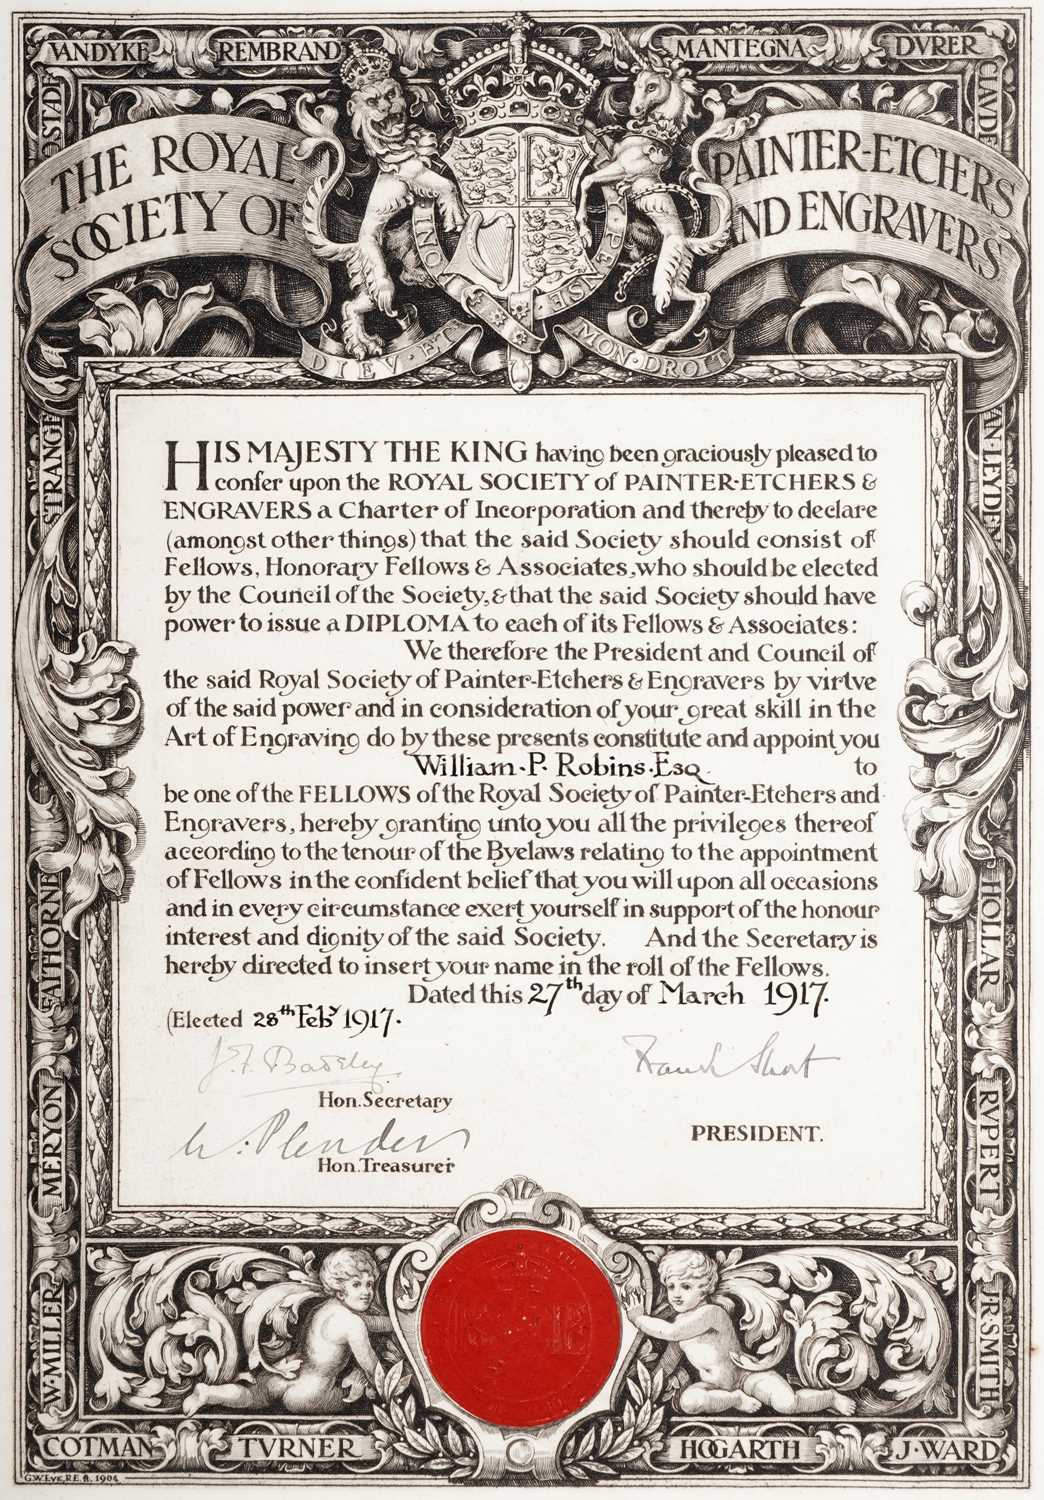 VANDYKE REMBRAND MANTEGNA DVRER
OSTADE
CLAVDE
THE ROYAL
SOCIETY OF
PAINTER-ETCHERS
AND ENGRAVERS
DIEV·ET MON·DROIT
STRANGE
VAN·LEYDEN
HIS MAJESTY THE KING having been graciously pleased to
confer upon the ROYAL SOCIETY of PAINTER-ETCHERS &
ENGRAVERS a Charter of Incorporation and thereby to declare
(amongst other things) that the said Society should consist of
Fellows, Honorary Fellows & Associates, who should be elected
by the Council of the Society, & that the said Society should have
power to issue a DIPLOMA to each of its Fellows & Associates:
We therefore the President and Council of
the said Royal Society of Painter-Etchers & Engravers by virtve
of the said power and in consideration of your great skill in the
Art of Engraving do by these presents constitute and appoint you
William·P·Robins·Esq to
be one of the FELLOWS of the Royal Society of Painter-Etchers and
Engravers, hereby granting unto you all the privileges thereof
according to the tenour of the Byelaws relating to the appointment
of Fellows in the confident belief that you will upon all occasions
and in every circumstance exert yourself in support of the honour
interest and dignity of the said Society. And the Secretary is
hereby directed to insert your name in the roll of the Fellows.
Dated this 27th day of March 1917.
(Elected 28th Feby 1917.
Frank Short
Hon. Secretary
PRESIDENT.
Hon. Treasurer
FAITHORNE
HOLLAR
MERYON
RVPERT
W·MILLER
J·R·SMITH
COTMAN TVRNER HOGARTH J·WARD
G.W.EVE, R.E. ft. 1904